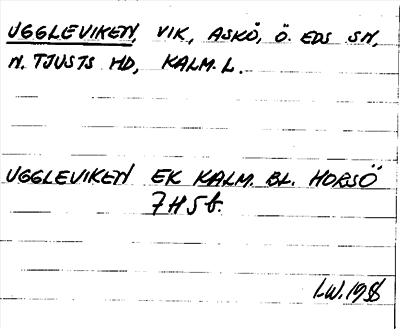 UGGLEVIKEN, VIK, ASKÖ, Ö. EDS SN,
N. TJUSTS HD, KALM. L.
UGGLEVIKEN EK KALM. BL. HORSÖ
7H5f.
I.W. 1988